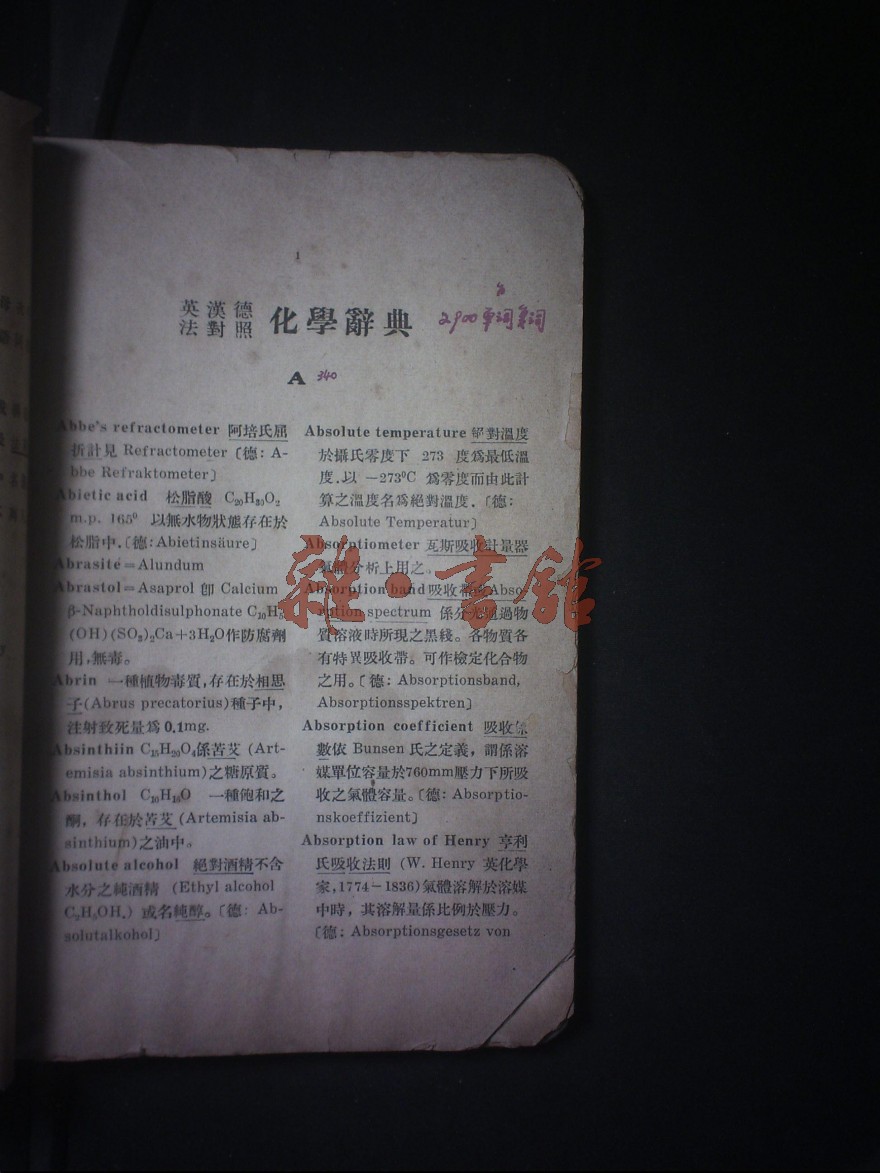 1
英漢德
法對照
化學辭典
2900单词
A 340
Abbe's refractometer 阿培氏屈
折計見 Refractometer〔德: A-
bbe Refraktometer〕
Abietic acid 松脂酸 C₂₀H₃₀O₂
m.p. 165⁰ 以無水物狀態存在於
松脂中.〔德:Abietinsäure〕
Abrasite=Alundum
Abrastol=Asaprol 卽 Calcium
β-Naphtholdisulphonate C₁₀H₅
(OH)(SO₃)₂Ca+3H₂O作防腐劑
用,無毒。
Abrin 一種植物毒質,存在於相思
子(Abrus precatorius)種子中,
注射致死量爲0.1mg.
Absinthiin C₁₅H₂₀O₄係苦艾 (Art-
emisia absinthium)之糖原質。
Absinthol C₁₀H₁₆O 一種飽和之
酮, 存在於苦艾 (Artemisia ab-
sinthium)之油中。
Absolute alcohol 絕對酒精不含
水分之純酒精 (Ethyl alcohol
C₂H₅OH.) 或名純醇。〔德: Ab-
solutalkohol〕
Absolute temperature 絕對溫度
於攝氏零度下 273 度爲最低溫
度.以 −273⁰C 爲零度而由此計
算之溫度名爲絕對溫度.〔德:
Absolute Temperatur〕
Absorptiometer 瓦斯吸收計量器
氣體分析上用之。
Absorption band 吸收帶 Abso-
rption spectrum 係分光通過物
質溶液時所現之黑綫。各物質各
有特異吸收帶。可作檢定化合物
之用。〔德: Absorptionsband,
Absorptionsspektren〕
Absorption coefficient 吸收係
數依 Bunsen 氏之定義, 謂係溶
媒單位容量於760mm壓力下所吸
收之氣體容量。〔德: Absorptio-
nskoeffizient〕
Absorption law of Henry 亨利
氏吸收法則 (W. Henry 英化學
家,1774−1836)氣體溶解於溶媒
中時, 其溶解量係比例於壓力。
〔德: Absorptionsgesetz von
雜·書館